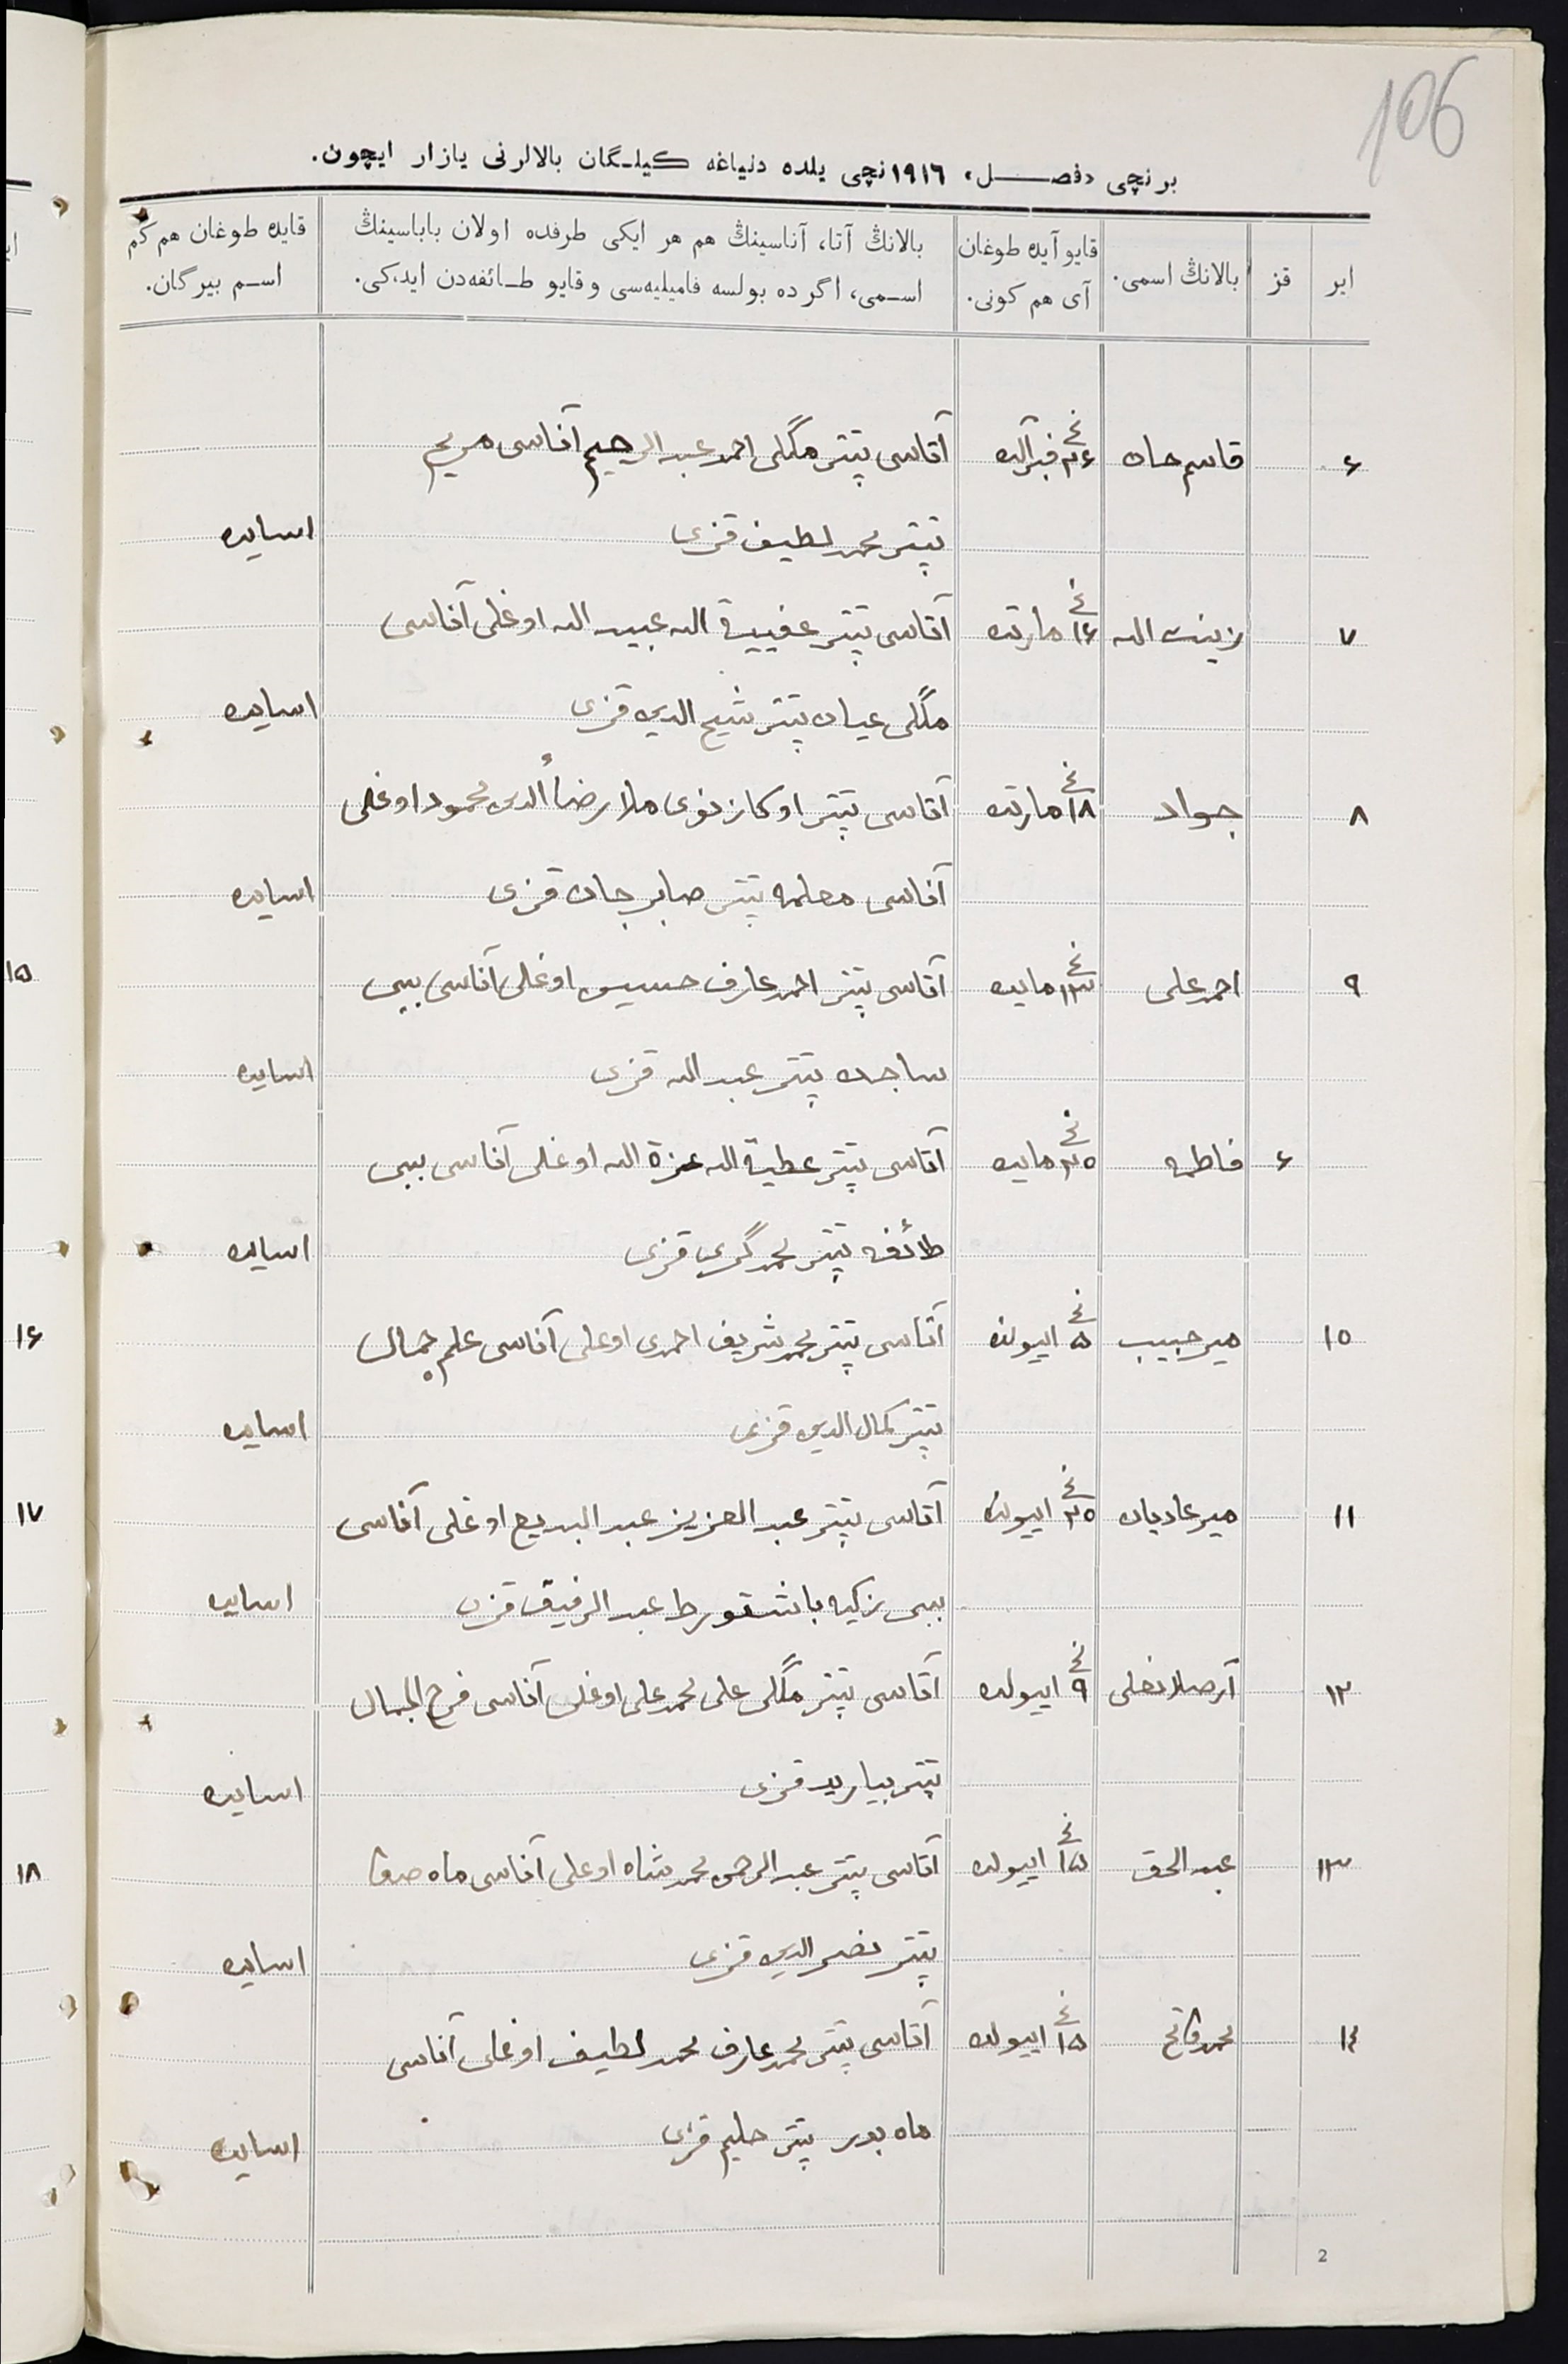 106
برنچی «فصـــل» ۱۹۱٦نچی یلده دنیاغه کیلـگان بالالرنی یازار ایچون.
ایر
قز
بالانڭ اسمی.
قایو آیده طوغان
آی هم کونی.
بالانڭ آتا، آناسینڭ هم هر ایکی طرفده اولان باباسینڭ
اسـمی، اگر ده بولسه فامیلیه‌سی و قایو طـائفه‌دن ایدکی.
قایده طوغان هم کم
اسـم بیرگان.
۶ قاسم جان ۲۶ نچی آتاسی تیپتر منگلی احمد عبد الرحیم آناسی مریم
تیپتر محمد لطیف قزی اسایده
۷ زینت الله ۱۶ نچی مارتده آتاسی تیپتر الله عبید الله اوغلی آناسی
منگلی تیپتر شیخ الدین قزی اسایده
۸ جواد ۱۸ نچی مارتده آتاسی تیپتر اوکازنوی ملا رضاء الدین محمود اوغلی
آناسی معلمه تیپتر صابر جان قزی اسایده
۹ احمد علی ۱۳ نچی مایده آتاسی تیپتر احمد عارف حسین اوغلی آناسی بیبی
ساجده تیپتر عبد الله قزی اسایده
۶ فاطمه ۲۵ نچی مایده آتاسی تیپتر عطیة الله عزة الله اوغلی آناسی بیبی
طائفه تیپتر محمد گری قزی اسایده
۱۰ میر حبیب ۵ نچی آتاسی تیپتر محمد شریف احمدی اوغلی آناسی علم جمال
تیپتر کمال الدین قزی اسایده
۱۱ آتاسی تیپتر عبد العزیز عبد البدیع اوغلی آناسی
بیبی زکیه باشقورط عبد الرفیق قزی اسایده
۱۲ ۹ نچی اییولده آتاسی تیپتر منگلی علی محمد علی اوغلی آناسی فرح الجمال
تیپتر قزی اسایده
۱۳ عبد الحق ۱۵ نچی اییولده آتاسی تیپتر عبد الرحمن محمد شاه اوغلی آناسی ماه
تیپتر نصر الدین قزی اسایده
۱۴ محمد فاتح ۱۵ نچی اییولده آتاسی تیپتر محمد عارف محمد لطیف اوغلی آناسی
ماه بدر تیپتر حلیم قزی اسایده
2
۱۵
۱۶
۱۷
۱۸